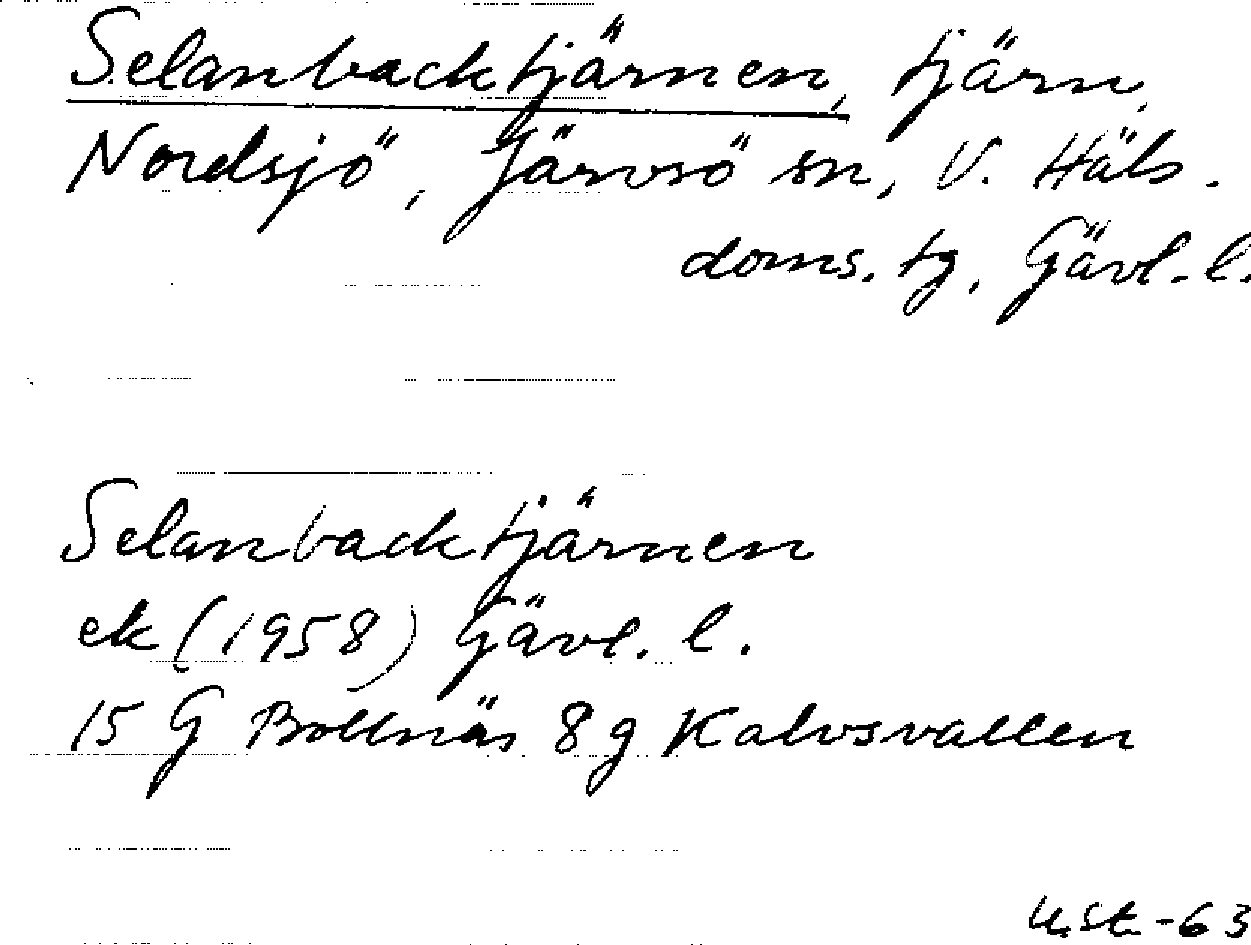 Selanbacktjärnen, tjärn,
Nordsjö, Järvsö sn, V. Häls.
doms. tg, Gävl. l.
Selanbacktjärnen
ek (1958) Gävl. l.
15 G Bollnäs 8 g Kalvsvallen
U.St. -63